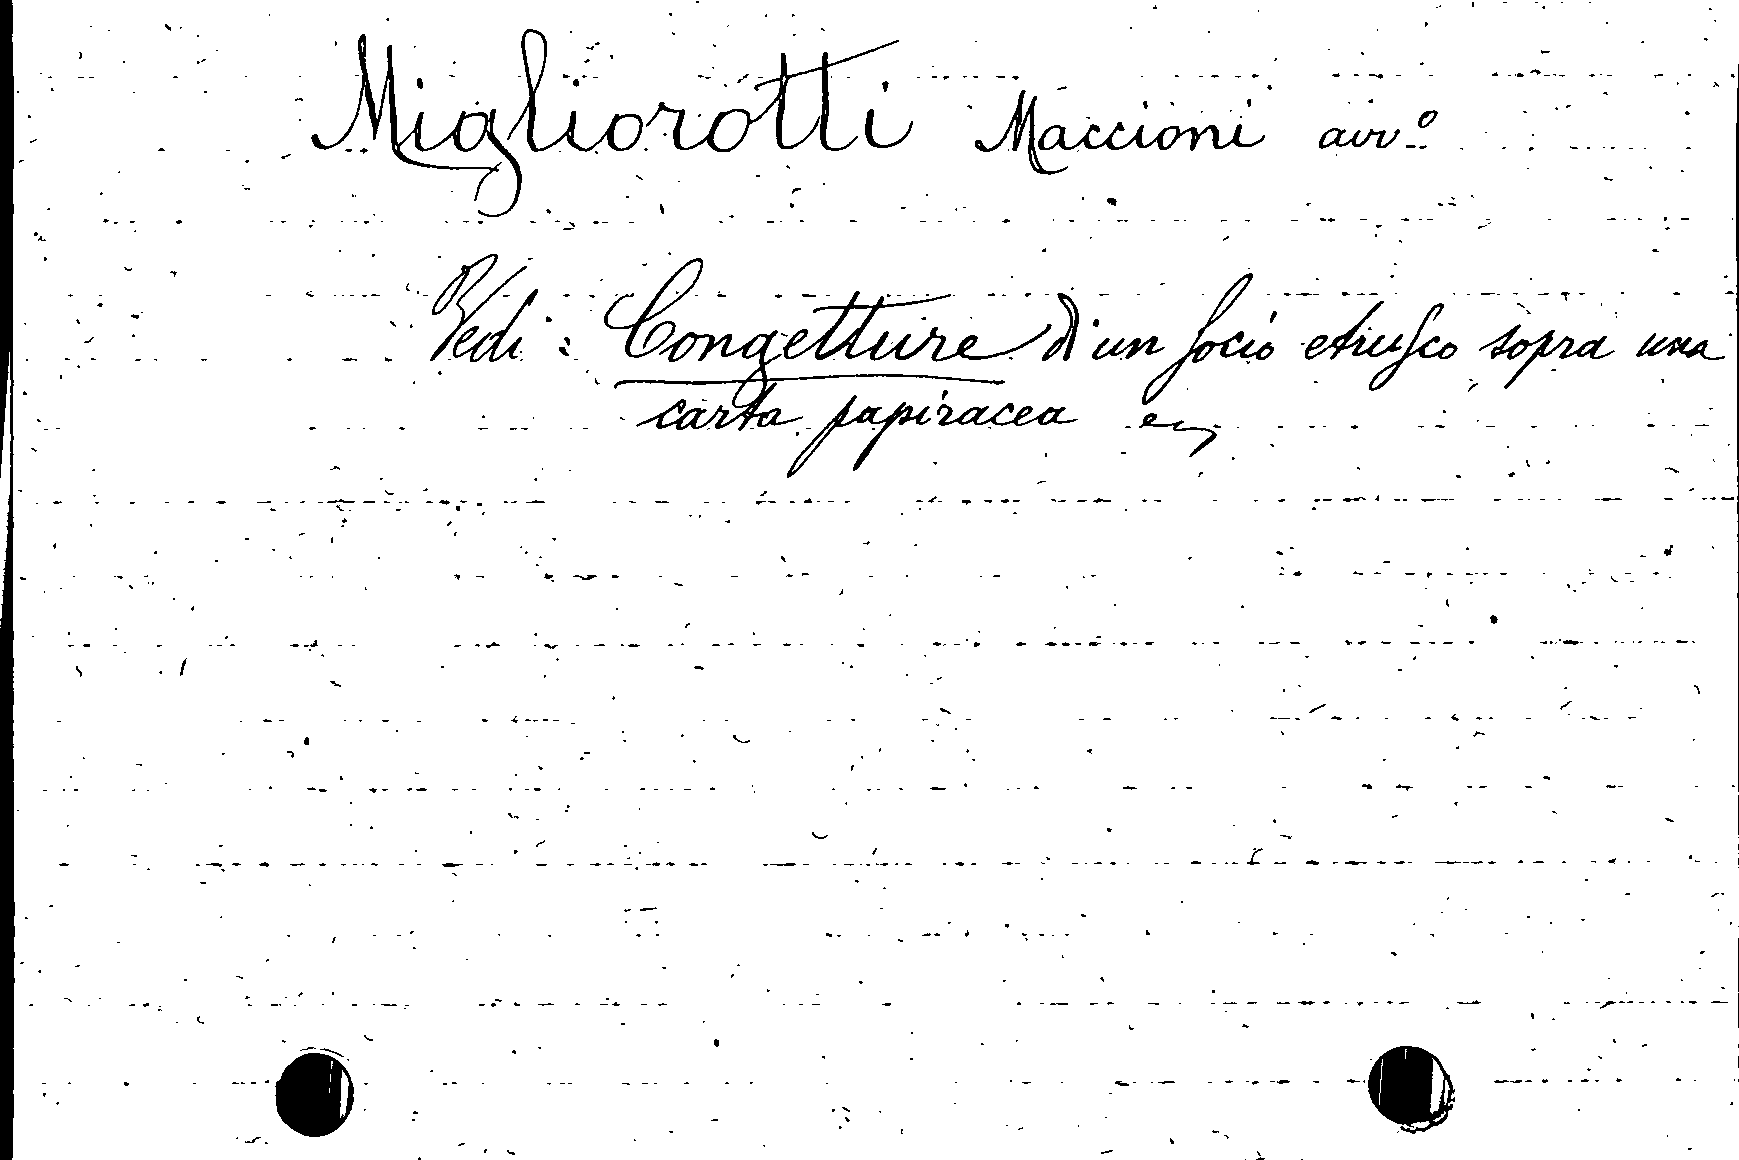 Migliorotti Maccioni avv.º
Vedi: Congetture di un socio etrusco sopra una
carta papiracea